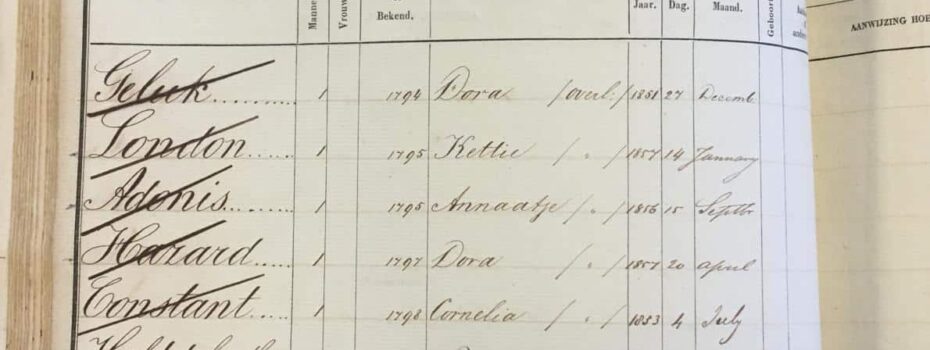 Manne
Vrouw
Bekend.
Jaar. Dag. Maand.
Geboort
AANWIJZING HOE
Geluk.......... 1 1794 Dora /overl:/ 1851 27 Decemb
London..... 1 1795 Kettie / " / 1857 14 January
Adonis........ 1 1795 Annaatje / " / 1856 15 Septbr
Hazard..... 1 1797 Dora / " / 1857 20 april
Constant..... 1 1798 Cornelia / " / 1853 4 July